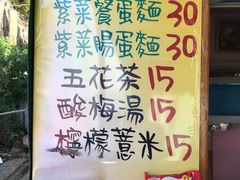 紫菜餐蛋麵 30
紫菜腸蛋麵 30
五花茶 15
酸梅湯 15
檸檬薏米 15